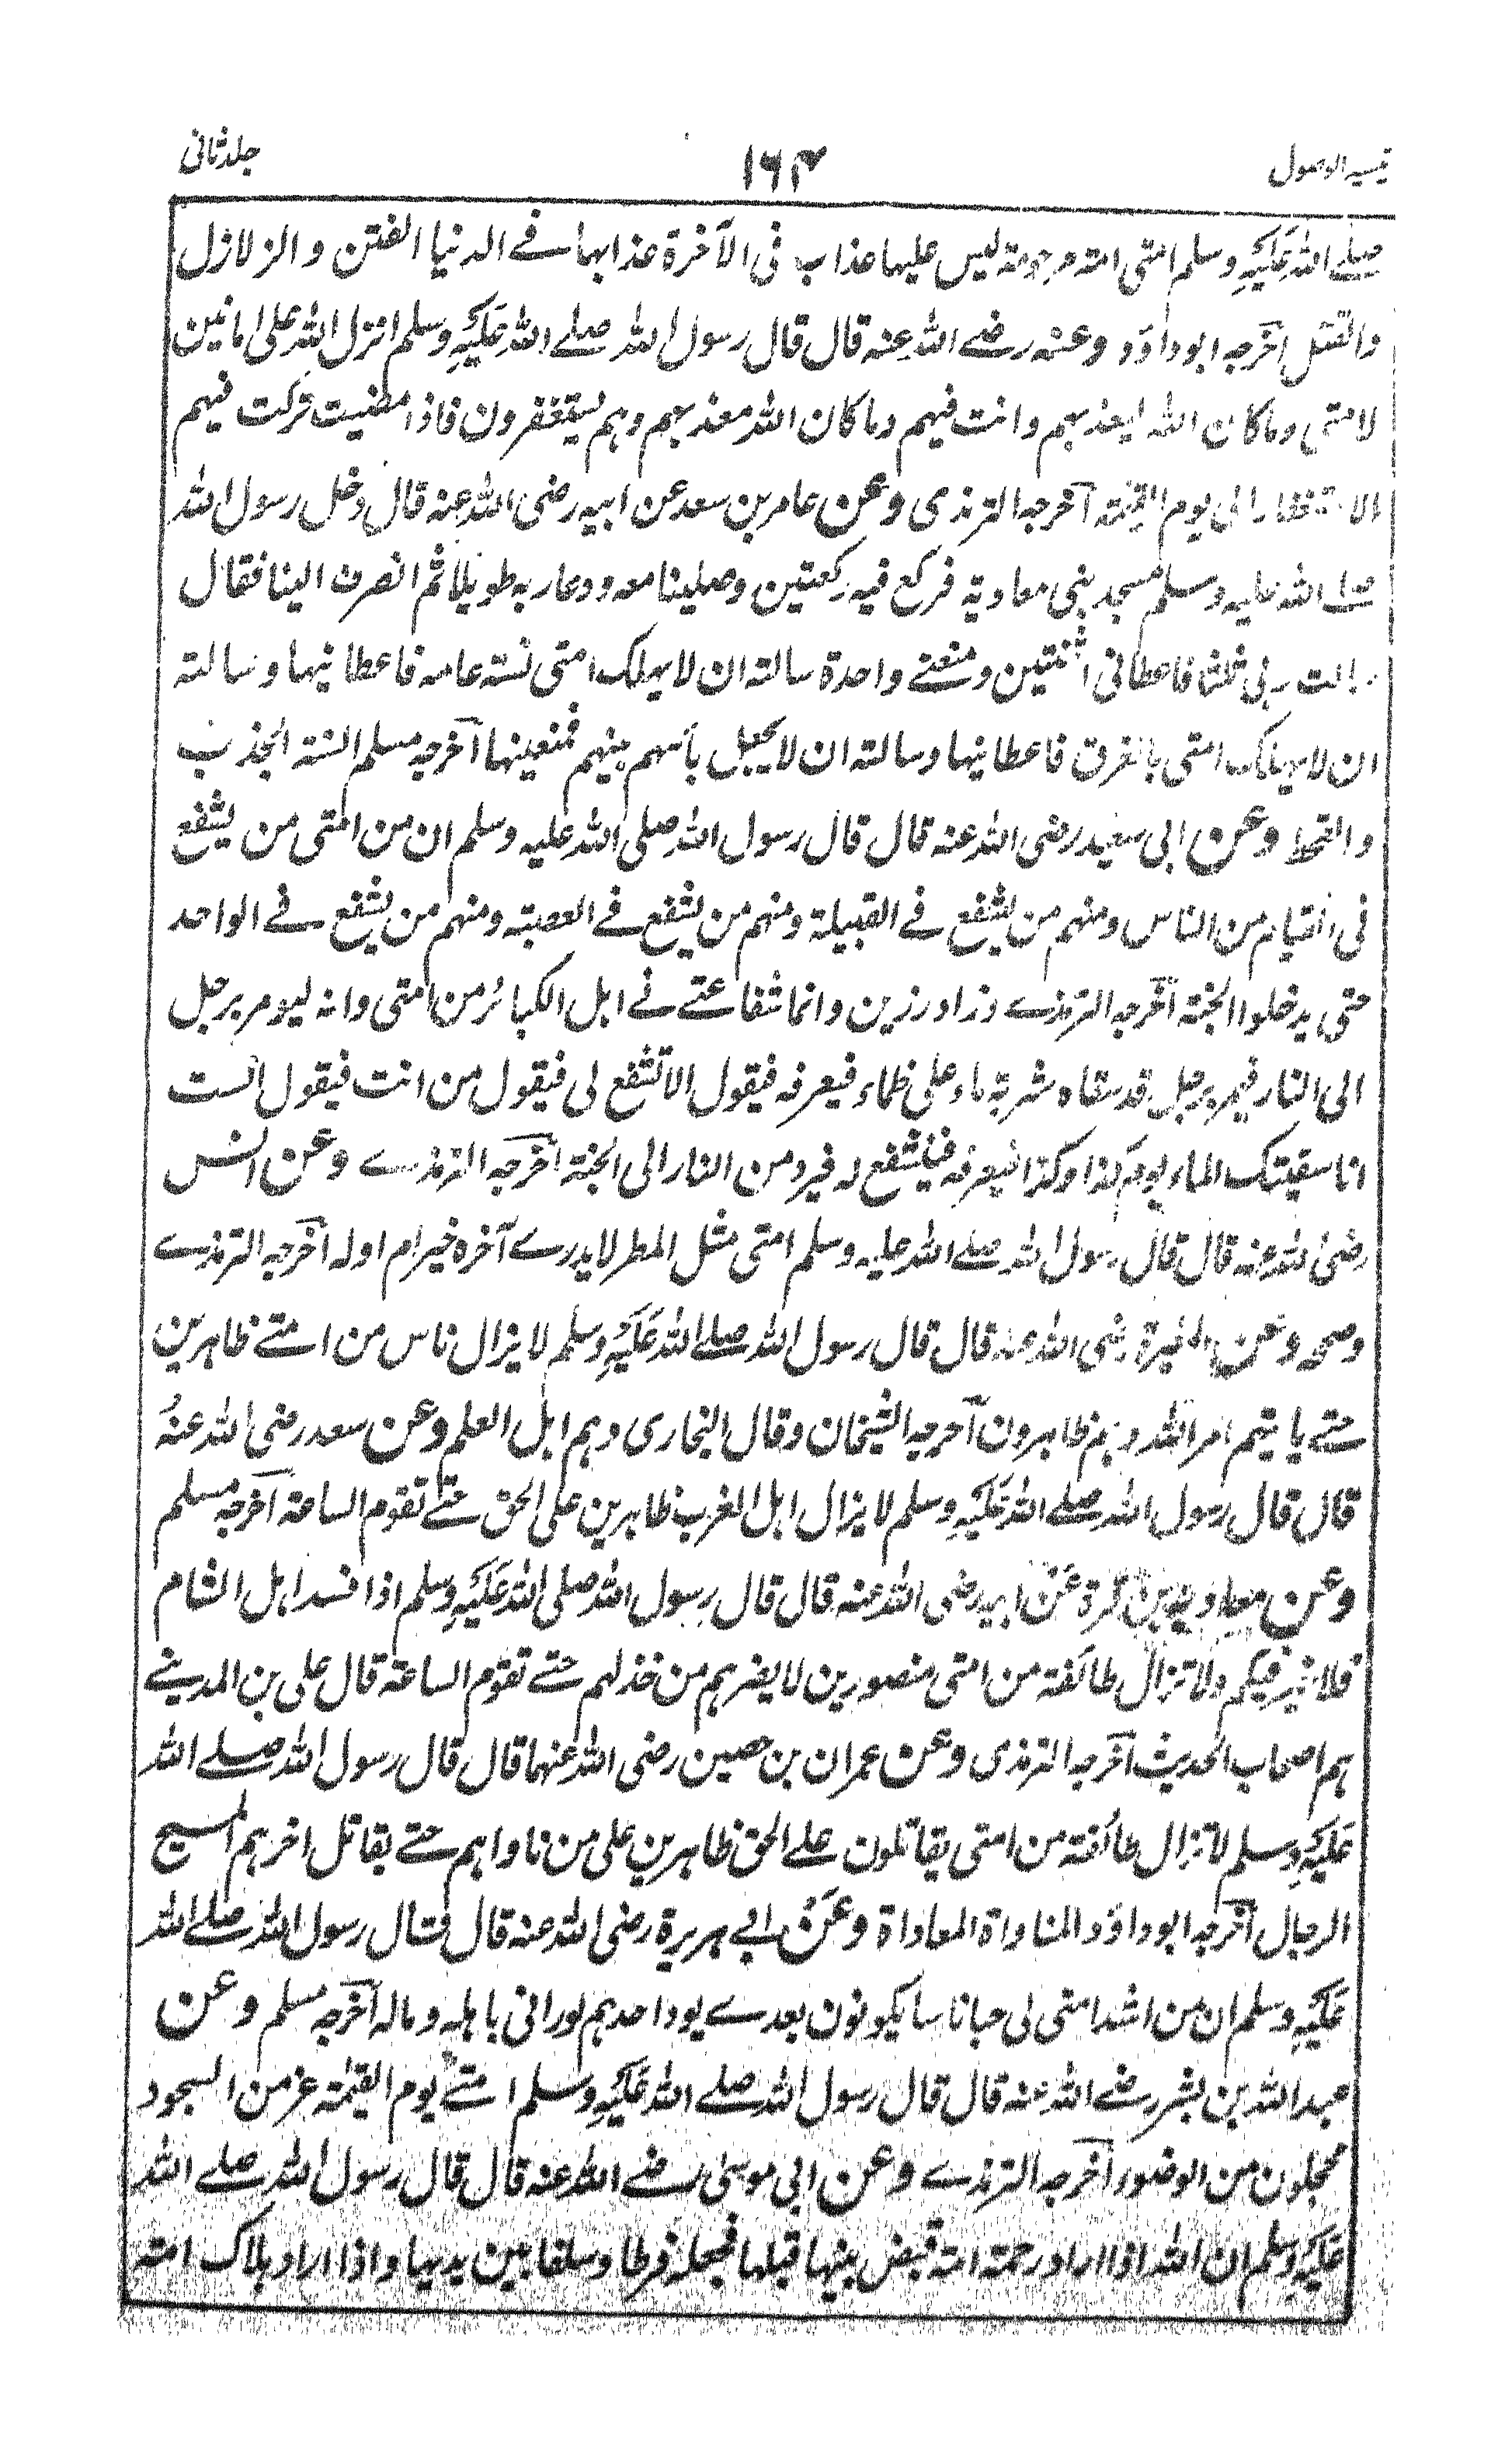 تيسير الوصول ١٦٤ جلد ثانى
صلے الله عَلَيْهِ وسلم امتى امة مرحومة ليس عليها عذاب فى الآخرة عذابها فے الدنيا الفتن والزلازل
والقتل اخرجه ابوداؤد وعنه رضے الله عنه قال قال رسول الله صلے الله عَلَيْهِ وسلم انزل الله على امانين
لامتى وماكان الله ليعذبهم وانت فيهم وماكان الله معذبهم وهم يستغفرون فاذا مضيت تركت فيهم
الاستغفار الى يوم القيمة اخرجه الترمذى وعن عامر بن سعد عن ابيه رضى الله عنه قال دخل رسول الله
صلے الله عليه وسلم مسجد بنى معاوية فركع فيه ركعتين وصلينا معه ودعا ربه طويلا ثم انصرف الينا فقال
سالت ربى ثلثا فاعطانى اثنتين ومنعنے واحدة سالته ان لا يهلك امتى بسنة عامة فاعطانيها وسالته
ان لا يهلك امتى بالغرق فاعطانيها وسالته ان لا يجعل بأسهم بينهم فمنعنيها اخرجه مسلم السنة الجذب
والقحط وعن ابى سعيد رضى الله عنه قال قال رسول الله صلى الله عليه وسلم ان من امتى من يشفع
فى الفئام من الناس ومنهم من يشفع فے القبيلة ومنهم من يشفع فے العصبة ومنهم من يشفع فے الواحد
حتى يدخلوا الجنة اخرجه الترمذے وزاد رزين وانما شفاعتے فے اهل الكبائر من امتى وانه ليومر برجل
الى النار فيمر برجل قد سقاه شربة ماء على ظماء فيعرفه فيقول الا تشفع لى فيقول من انت فيقول الست
انا سقيتك الماء يوم كذا وكذا فيعرفه فيشفع له فيرد من النار الى الجنة اخرجه الترمذے وعن انس
رضى الله عنه قال قال رسول الله صلے الله عليه وسلم امتى مثل المطر لا يدرے آخره خير ام اوله اخرجه الترمذے
وصححه وعن المغيرة رضى الله عنه قال قال رسول الله صلے الله عَلَيْهِ وسلم لا يزال ناس من امتے ظاهرين
حتے ياتيهم امر الله وهم ظاهرون اخرجه الشيخان وقال البخارى وهم اهل العلم وعن سعد رضى الله عنهُ
قال قال رسول الله صلے الله عَلَيْهِ وسلم لا يزال اهل الغرب ظاهرين على الحق حتے تقوم الساعة اخرجه مسلم
وعن معاوية بن قرة عن ابيه رضى الله عنه قال قال رسول الله صلى الله عَلَيْهِ وسلم اذا فسد اهل الشام
فلا خير فيكم ولا تزال طائفة من امتى منصورين لا يضرهم من خذلهم حتے تقوم الساعة قال على بن المدينے
هم اصحاب الحديث اخرجه الترمذى وعن عمران بن حصين رضى الله عنهما قال قال رسول الله صلے الله
عَلَيْهِ وسلم لا تزال طائفة من امتى يقاتلون علے الحق ظاهرين على من ناواهم حتے يقاتل اخرهم المسيح
الدجال اخرجه ابوداؤد المناواة المعاداة وعن ابے هريرة رضى الله عنه قال قال رسول الله صلے الله
عَلَيْهِ وسلم ان من اشد امتى لى حبا ناسا يكونون بعدے يود احدهم لو رانى باهله وماله اخرجه مسلم وعن
عبد الله بن بشر رضے الله عنه قال قال رسول الله صلے الله عَلَيْهِ وسلم امتے يوم القيمة غر من السجود
محجلون من الوضوء اخرجه الترمذے وعن ابى موسىٰ رضے الله عنه قال قال رسول الله صلے الله
عَلَيْهِ وسلم ان الله اذا اراد رحمة امة قبض نبيها قبلها فجعله فرطا وسلفا بين يديها واذا اراد هلاك امة